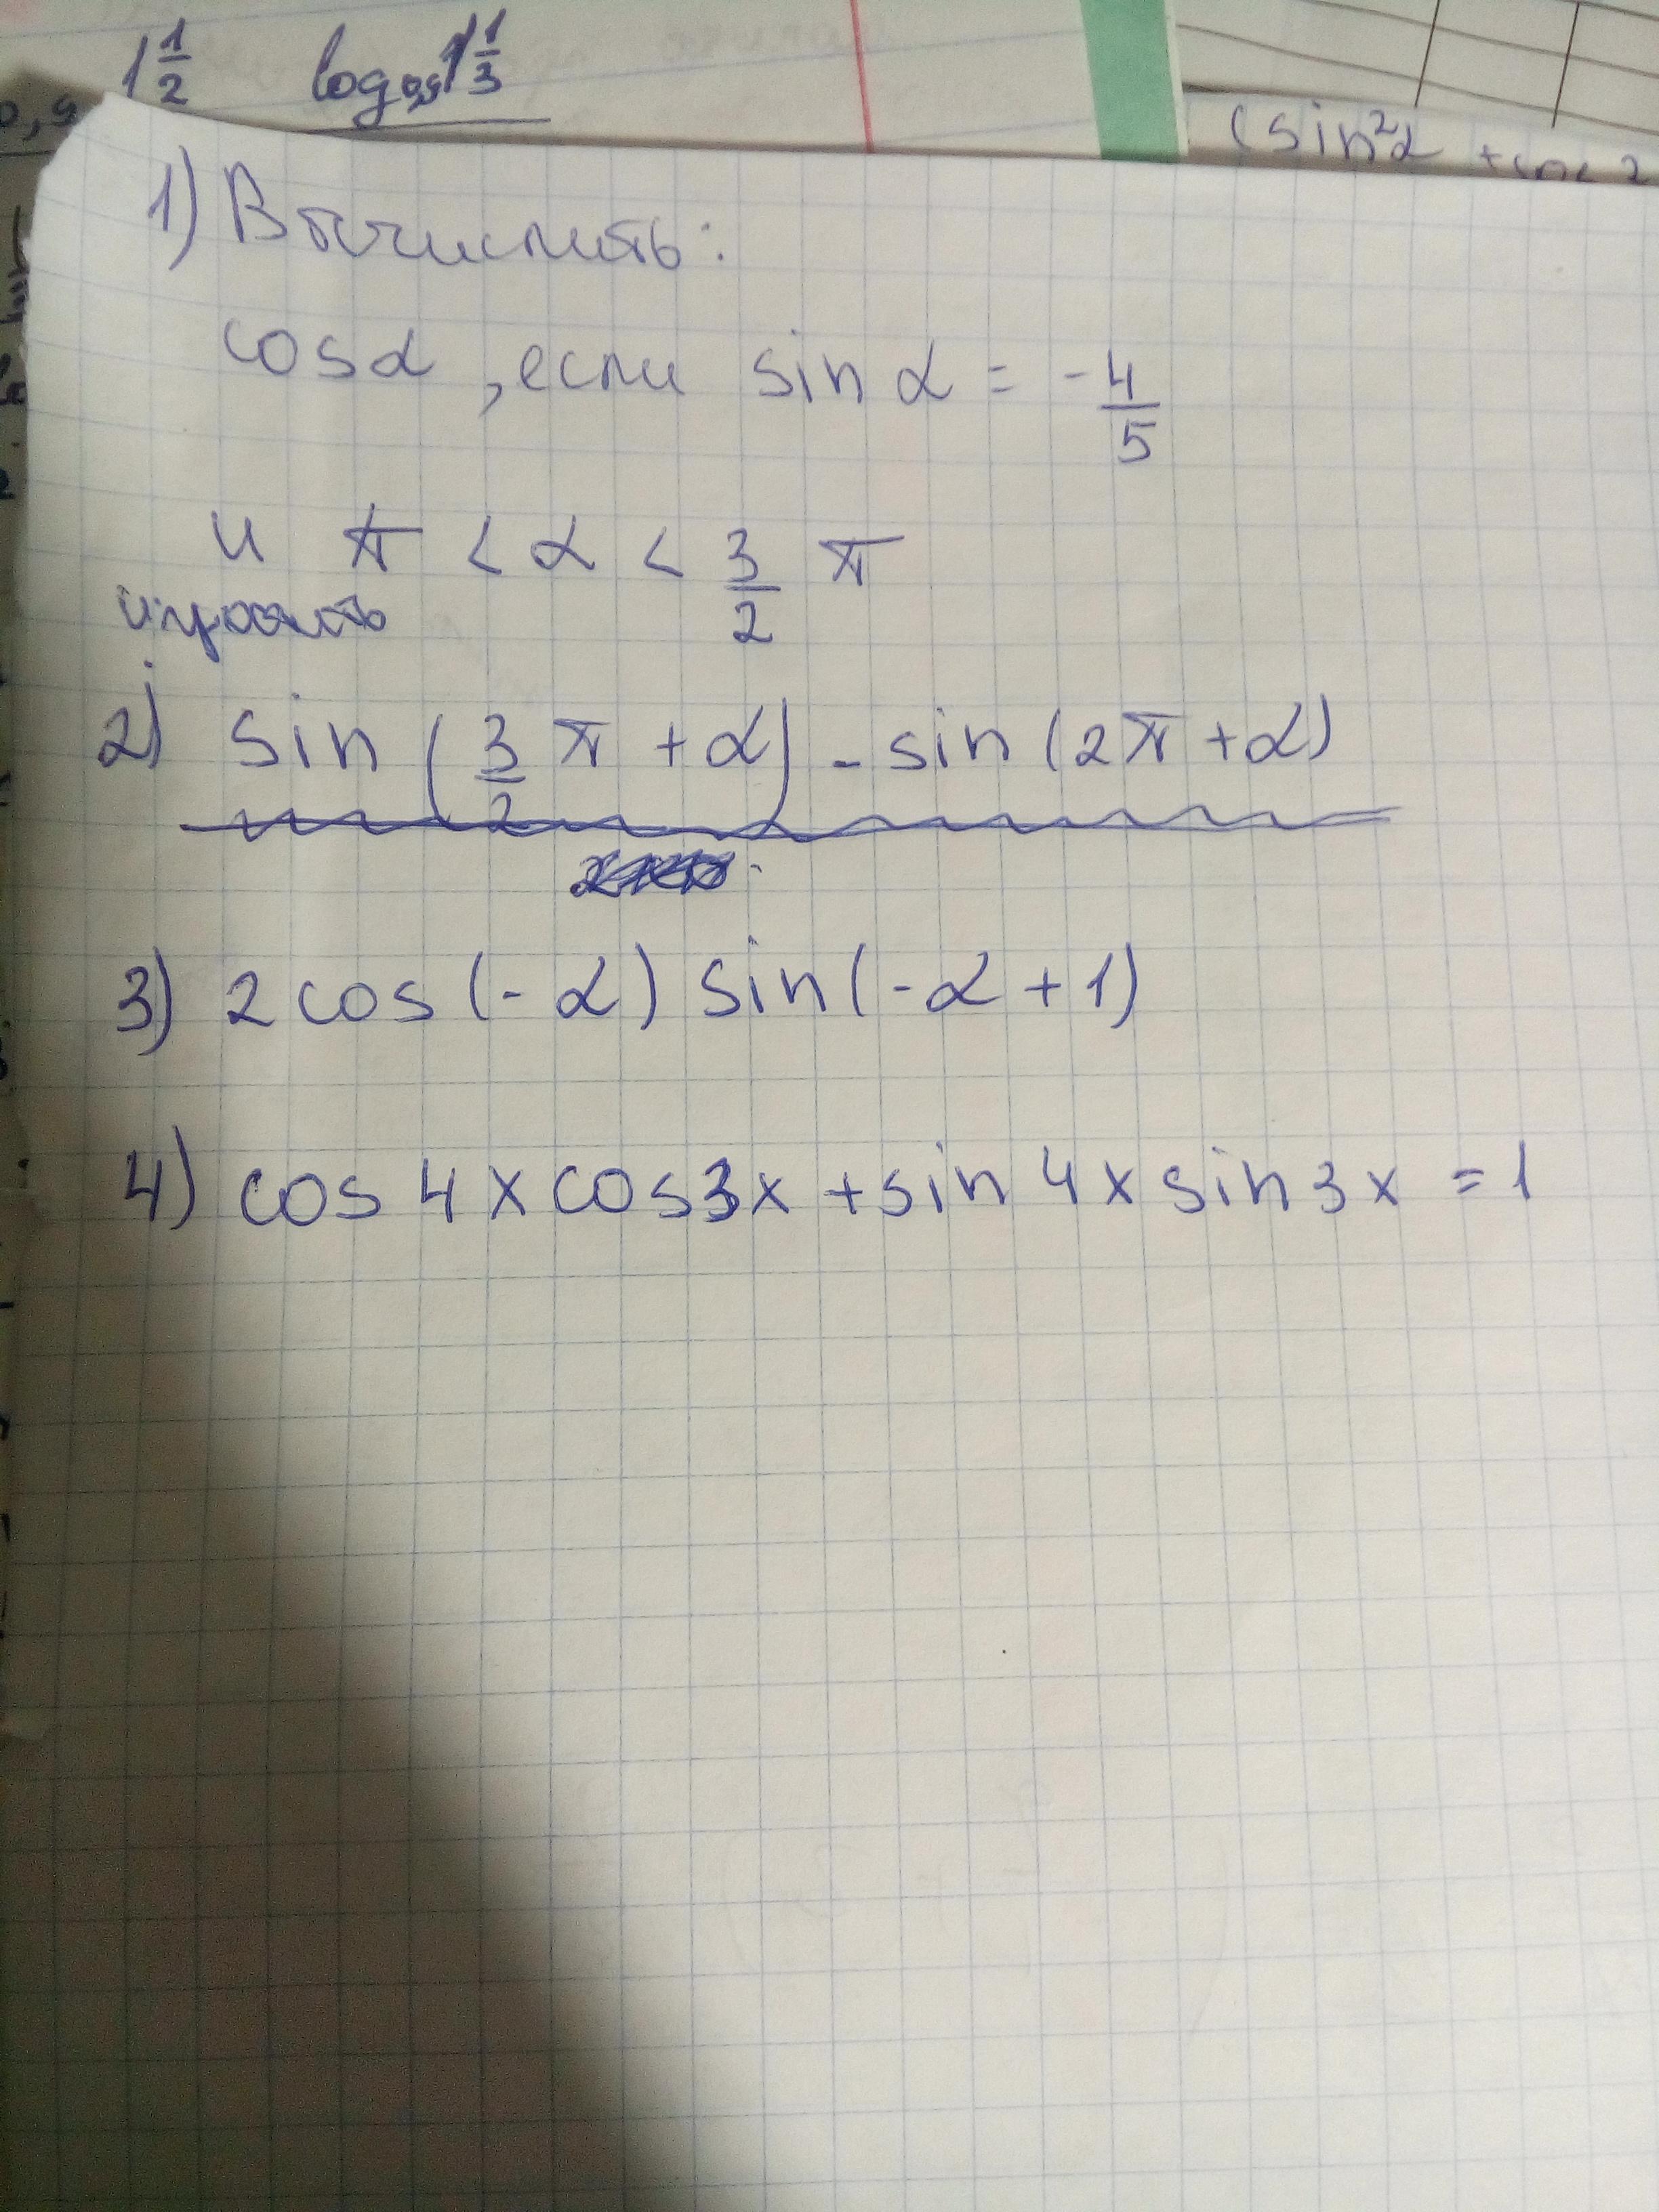 1 1/2 log0,9 1 1/3
(sin²α +cos²
1) Вычислить:
cosα, если sin α = - 4/5
и π < α < 3/2 π
2) sin (3/2 π + α) - sin (2π + α)
3) 2 cos (- α) sin (- α + 1)
4) cos 4x cos3x + sin 4x sin 3x = 1